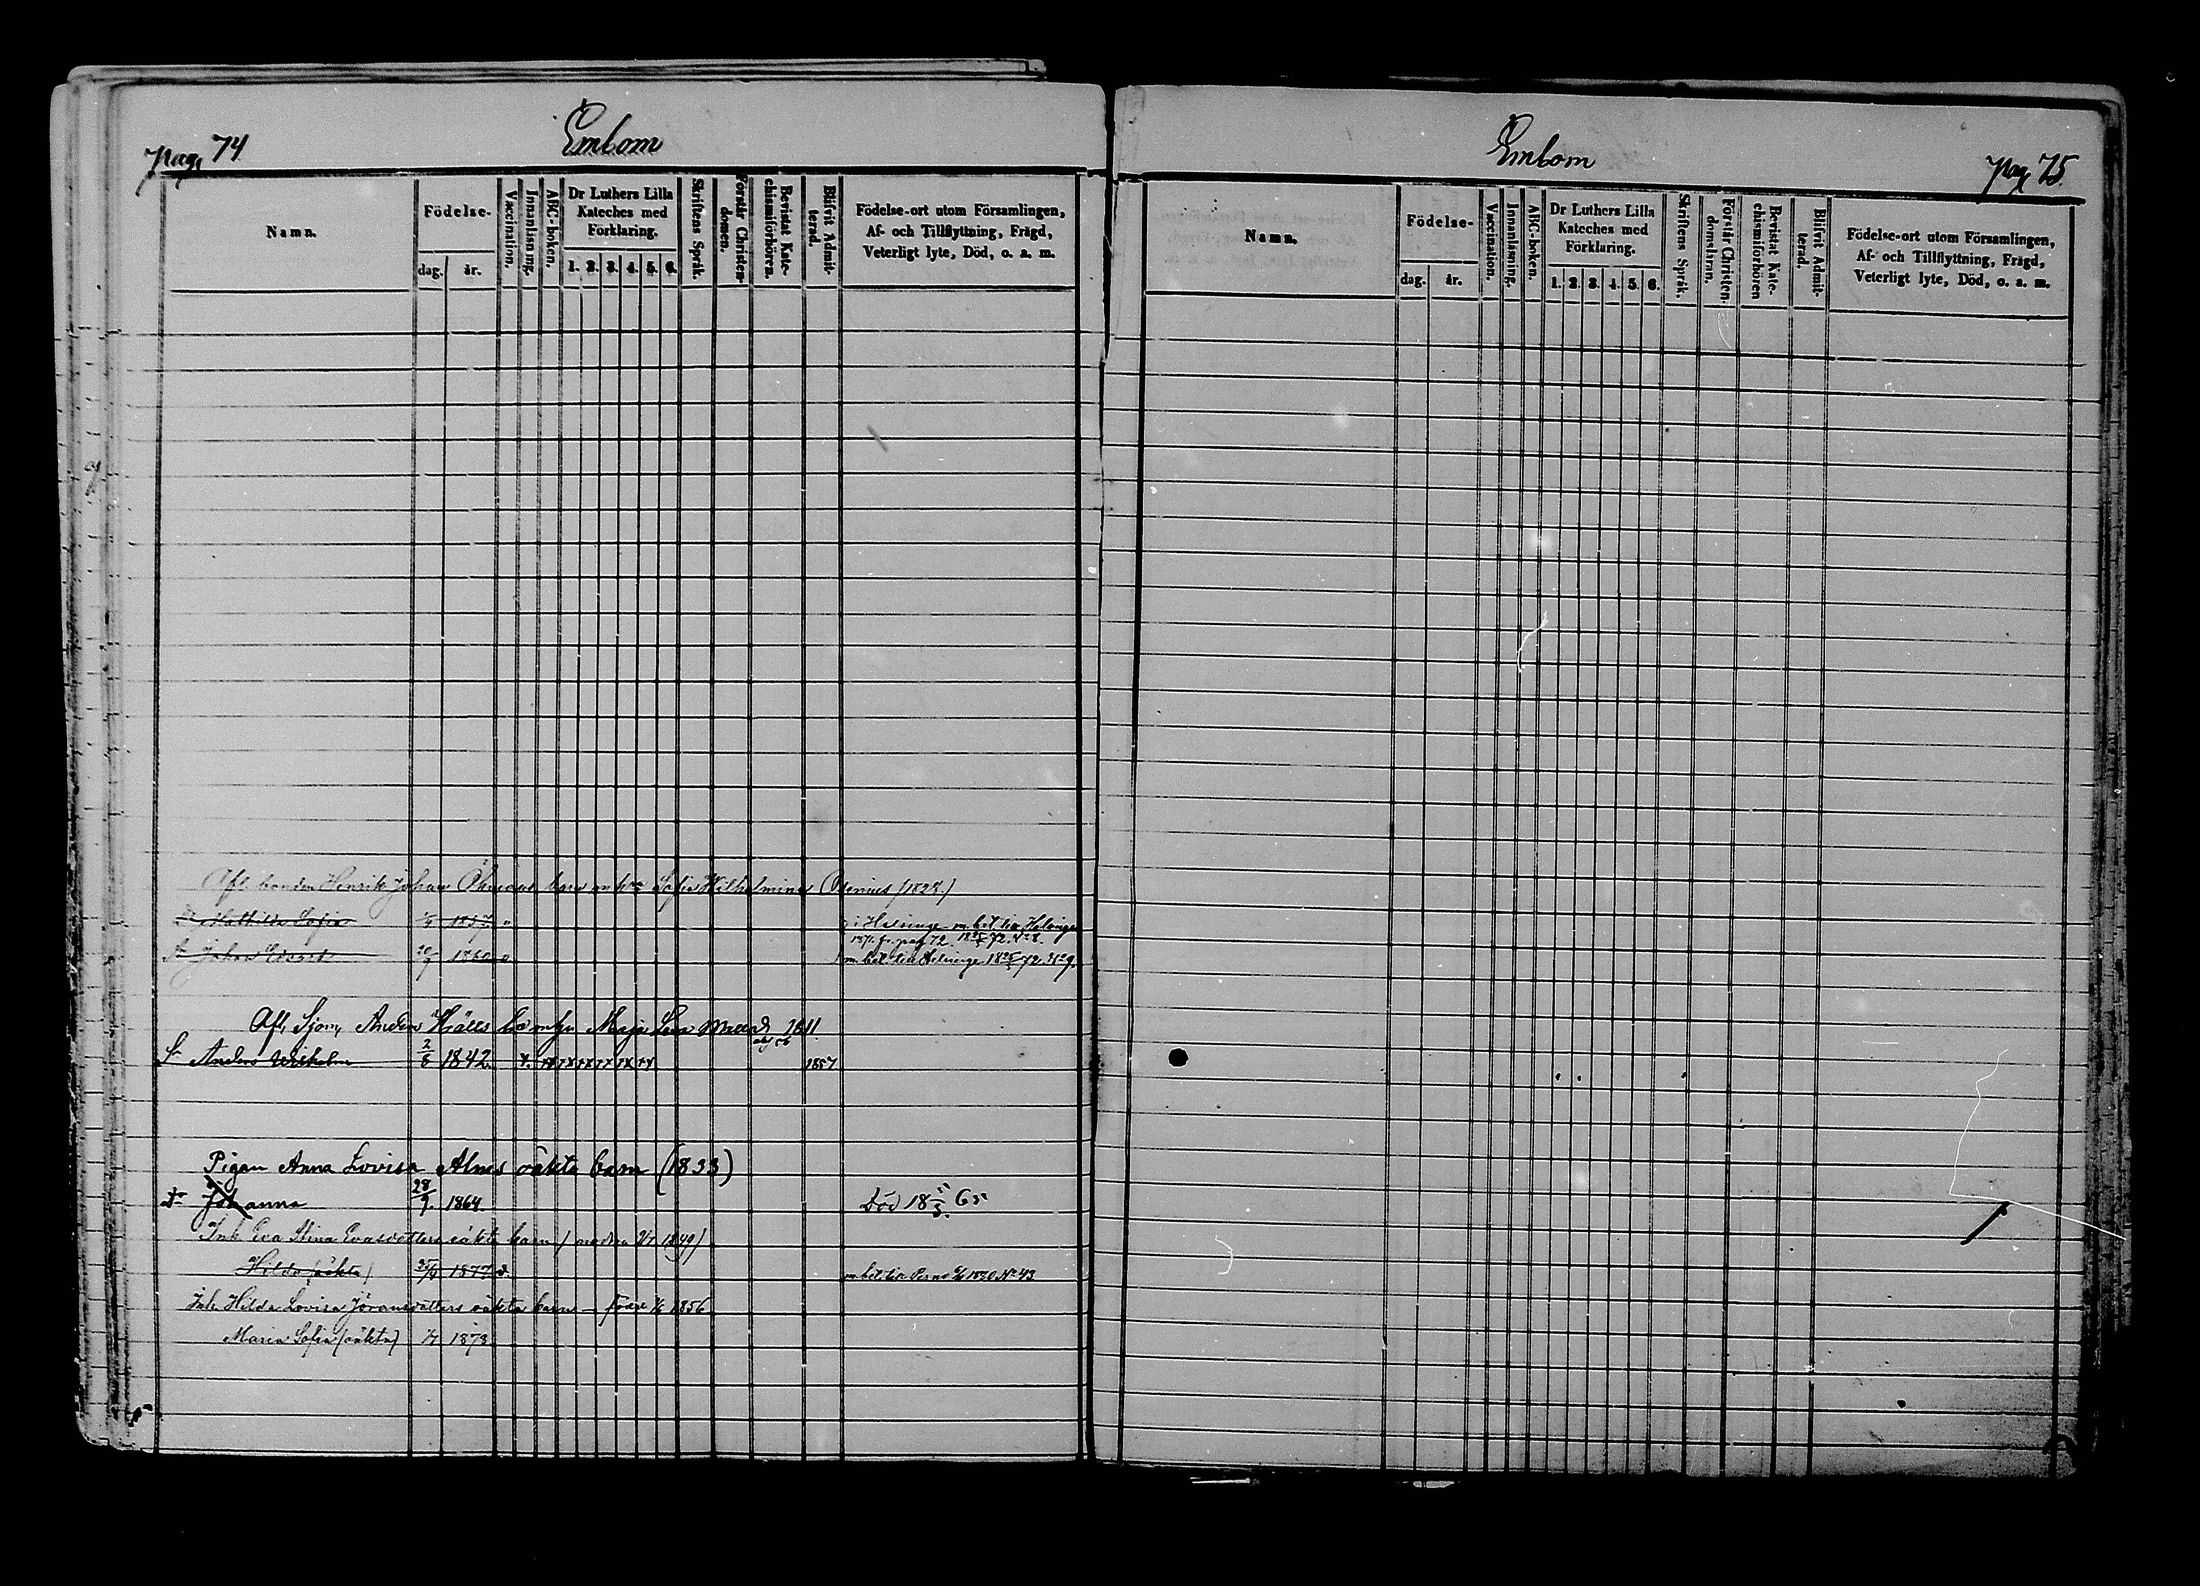 pag. 74
Embom
Namn.
Födelse-
dag. år.
Vaccination.
Innanläsning.
ABC-boken.
Dr Luthers Lilla
Kateches med
Förklaring.
1. 2. 3. 4. 5. 6.
Skriftens Språk.
Förstår Christen-
domen.
Bevistat Kate-
chismiförhören.
Blifvit Admit-
terad.
Födelse-ort utom Församlingen,
Af- och Tillflyttning, Frägd,
Veterligt lyte, Död, o. a. m.
Afl. bonden Henrik Johan Öhmans barn Sofia Wilhelmina (1828.)
Mathilda Sofia 1857 i Helsinge m. bet. till Helsinge
pag 72
Johan Edvard 1860 m. bet. till Helsinge
Afl. Sjöm. Anders Källs Maja Lena 1811.
Sn Anders Wilhelm 2/8 1842. 1857
Pigan Anna Lovisa Alms oäkta barn (1833)
Dr Johanna 28/9. 1864. Död 18 65
Inh. Eva Stina Evasdotters oäkta barn 1849)
Hilda (oäkta) 25/9 1877 m. bet. till Perno No 43
Inh. Hilda Lovisa Göransdotters oäkta barn – född 1856
Maria Sofia (oäkta) 1878
Embom
pag 75.
Namn.
Födelse-
dag. år.
Vaccination.
Innanläsning.
ABC-boken.
Dr Luthers Lilla
Kateches med
Förklaring.
1. 2. 3. 4. 5. 6.
Skriftens Språk.
Förstår Christen-
domsläran.
Bevistat Kate-
chismiförhören
Blifvit Admit-
terad.
Födelse-ort utom Församlingen,
Af- och Tillflyttning, Frägd,
Veterligt lyte, Död, o. a. m.